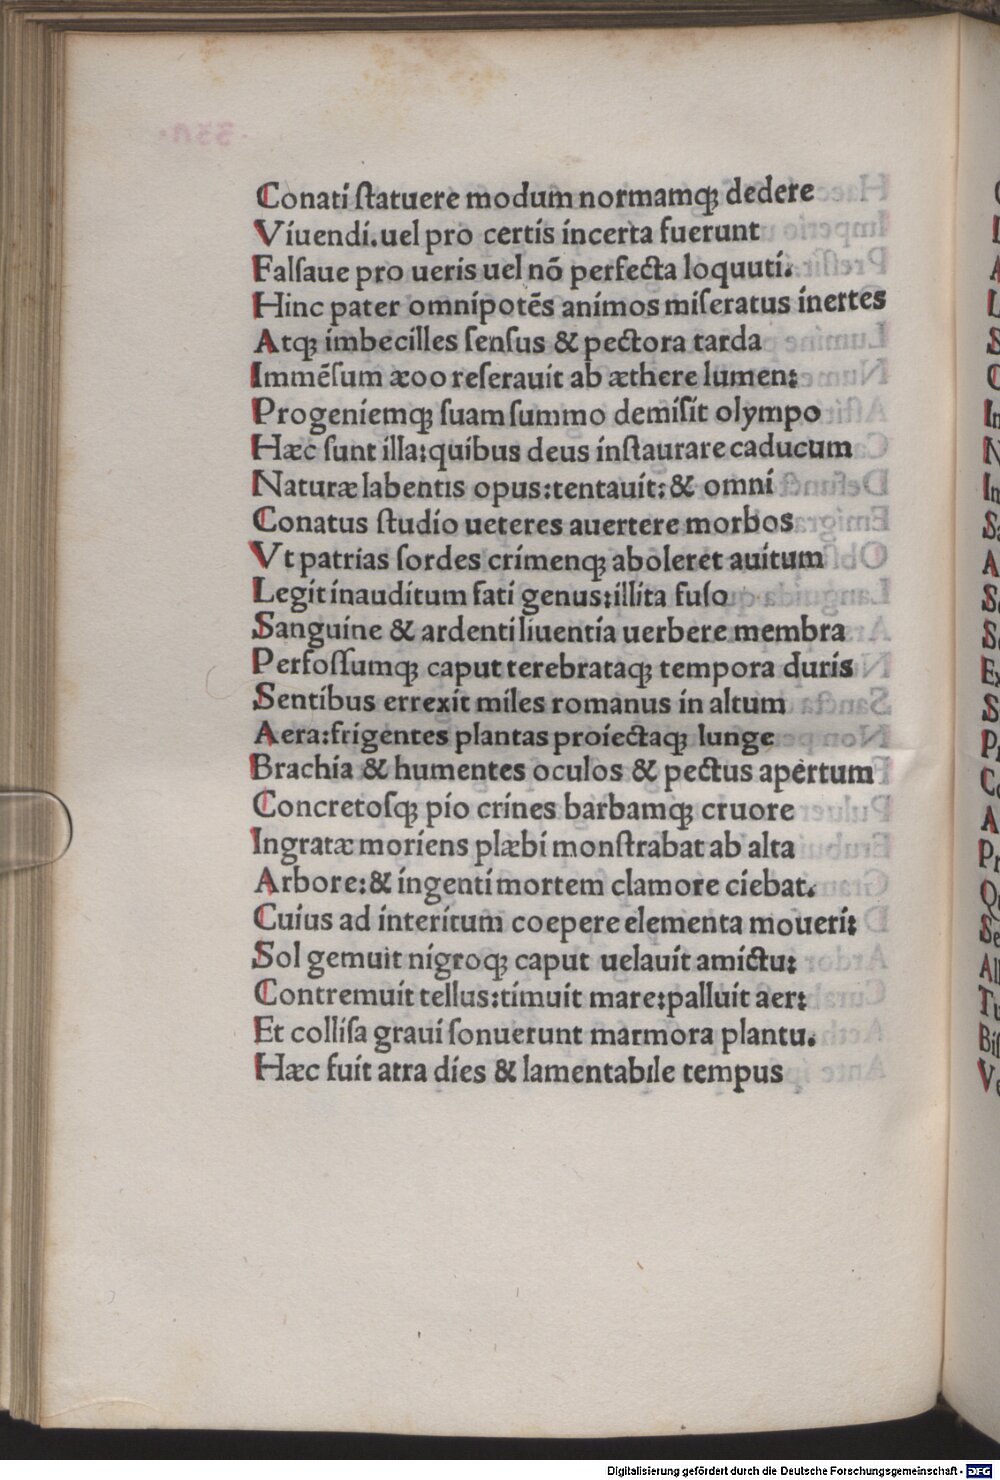 Conati ſtatuere modum normamq; dedere
Viuendi. uel pro certis incerta fuerunt
Falſaue pro ueris uel nõ perfecta loquuti.
Hinc pater omnipotẽs animos miſeratus inertes
Atq; imbecilles ſenſus & pectora tarda
Immẽſum æoo reſerauit ab æthere lumen:
Progeniemq; ſuam ſummo demiſit olympo
Hæc ſunt illa: quibus deus inſtaurare caducum
Naturæ labentis opus: tentauit: & omni
Conatus ſtudio ueteres auertere morbos
Vt patrias ſordes crimenq; aboleret auitum
Legit inauditum fati genus: illita fuſo
Sanguine & ardenti liuentia uerbere membra
Perfoſſumq; caput terebrataq; tempora duris
Sentibus errexit miles romanus in altum
Aera: frigentes plantas proiectaq; lunge
Brachia & humentes oculos & pectus apertum
Concretoſq; pio crines barbamq; cruore
Ingratæ moriens plæbi monſtrabat ab alta
Arbore: & ingenti mortem clamore ciebat.
Cuius ad interitum coepere elementa moueri:
Sol gemuit nigroq; caput uelauit amictu:
Contremuit tellus: timuit mare: palluit aer:
Et colliſa graui ſonuerunt marmora plantu.
Hæc fuit atra dies & lamentabile tempus
Digitalisierung gefördert durch die Deutsche Forschungsgemeinschaft - DFG